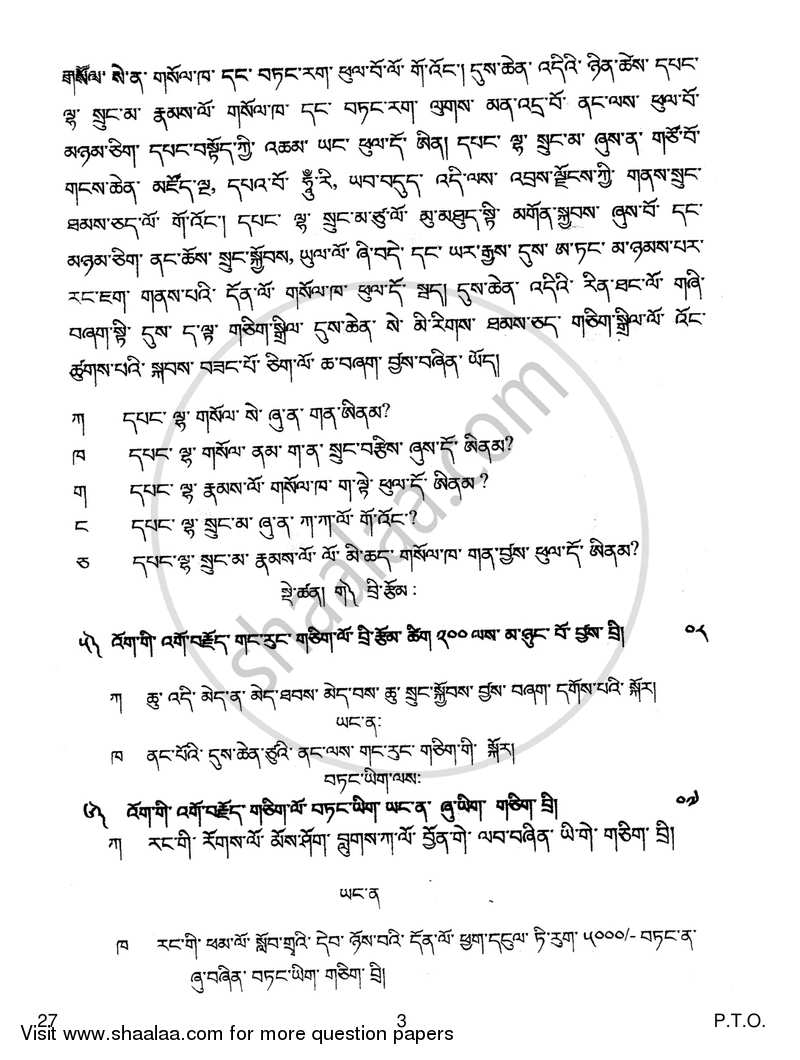 གསོལ་ སེ་ན་ གསོལ་ཁ་ དང་ བཏང་རག་ ཕུལ་བོ་ལོ་ གོ་འོང་། དུས་ཆེན་ འདིའི་ ཉིན་ཚེས་ དཔང་
ལྷ་ སྲུང་མ་ རྣམས་ལོ་ གསོལ་ཁ་ དང་ བཏང་རག་ ལུགས་ མན་འདྲ་བོ་ ནང་ལས་ ཕུལ་བོ་
མཉམ་ཅིག་ དཔང་བསྟོད་ཀྱི་ འཆམ་ ཡང་ ཕུལ་དོ་ ཨིན། དཔང་ ལྷ་ སྲུང་མ་ ཞུས་ན་ གཙོ་བོ་
གངས་ཆེན་ མཛོད་ལྔ་, དཔའ་བོ་ ཧཱུྃ་རི, ཡབ་བདུད་ འདི་ལས་ འབྲས་ལྗོངས་ཀྱི་ གནས་སྲུང་
ཐམས་ཅད་ལོ་ གོ་འོང་། དཔང་ ལྷ་ སྲུང་མ་ཙུ་ལོ་ མུ་མཐུད་སྟི་ མགོན་སྐྱབས་ ཞུས་བོ་ དང་
མཉམ་ཅིག་ ནང་ཆོས་ སྲུང་སྐྱོབས, ཡུལ་ལོ་ ཞི་བདེ་ དང་ ཡར་རྒྱས་ དུས་ ཨ་ཏང་ མ་ཉམས་པར་
རང་ཇག་ གནས་པའི་ དོན་ལོ་ གསོལ་ཁ་ ཕུལ་དོ་ སྦད། དུས་ཆེན་ འདིའི་ རིན་ཐང་ལོ་ གཞི་
བཞག་སྟི་ དུས་ ད་ལྟ་ གཅིག་སྒྲིལ་ དུས་ཆེན་ སེ་ མི་རིགས་ ཐམས་ཅད་ གཅིག་སྒྲིལ་ལོ་ འོང་
ཚུགས་པའི་ སྐབས་ བཟང་པོ་ ཅིག་ལོ་ ཆ་བཞག་ བྱས་བཞིན་ ཡོད།
ཀ དཔང་ ལྷ་ གསོལ་ སེ་ ཞུ་ན་ གན་ཨིནམ?
ཁ དཔང་ ལྷ་ གསོལ་ ནམ་ ག་ན་ སྲུང་བརྩིས་ ཞུས་དོ་ ཨིནམ?
ག དཔང་ ལྷ་ རྣམས་ལོ་ གསོལ་ཁ་ ག་ལྟེ་ ཕུལ་དོ་ ཨིནམ?
ང དཔང་ ལྷ་ སྲུང་མ་ ཞུ་ན་ ཀ་ཀ་ལོ་ གོ་འོང་?
ཅ དཔང་ལྷ་ སྲུང་མ་ རྣམས་ལོ་ ལོ་ མི་ཆད་ གསོལ་ཁ་ གན་བྱས་ ཕུལ་དོ་ ཨིནམ?
སྡེ་ཚན། ག༽ བྲི་རྩོམ་:
༥༽ འོག་གི་ འགོ་བརྗོད་ གང་རུང་ གཅིག་ལོ་ བྲི་རྩོམ་ ཚིག་ ༢༠༠ ལས་ མ་ཉུང་ བོ་ བྱས་ བྲི།
ཀ ཆུ་ འདི་ མེད་ན་ མེད་ཐབས་ མེད་བས་ ཆུ་ སྲུང་སྐྱོབས་ བྱས་ བཞག་ དགོས་པའི་ སྐོར།
ཡང་ན་:
ཁ ནང་པོའི་ དུས་ཆེན་ཙུའི་ ནང་ལས་ གང་རུང་ གཅིག་གི་ སྐོར།
བཏང་ཡིག་ལས་:
༦༽ འོག་གི་ འགོ་བརྗོད་ གཅིག་ལོ་ བཏང་ཡིག་ ཡང་ན་ ཞུ་ཡིག་ གཅིག་ བྲི། ༠༧
ཀ རང་གི་ རོགས་ལོ་ མོས་ཤོག་ བླུགས་ཀ་ལོ་ བྱོན་གེ་ ལབ་བཞིན་ ཡི་གེ་ གཅིག་ བྲི།
ཡང་ན
ཁ རང་གི་ ཕམ་ལོ་ སློབ་གྲྭའི་ དེབ་ ཉོས་བའི་ དོན་ལོ་ ཕྱག་དངུལ་ ཏི་རུག་ ༥༠༠༠/- བཏང་ན་
ཞུ་བཞིན་ བཏང་ཡིག་ གཅིག་ བྲི།
27 3 P.T.O.
Visit www.shaalaa.com for more question papers
shaalaa.com